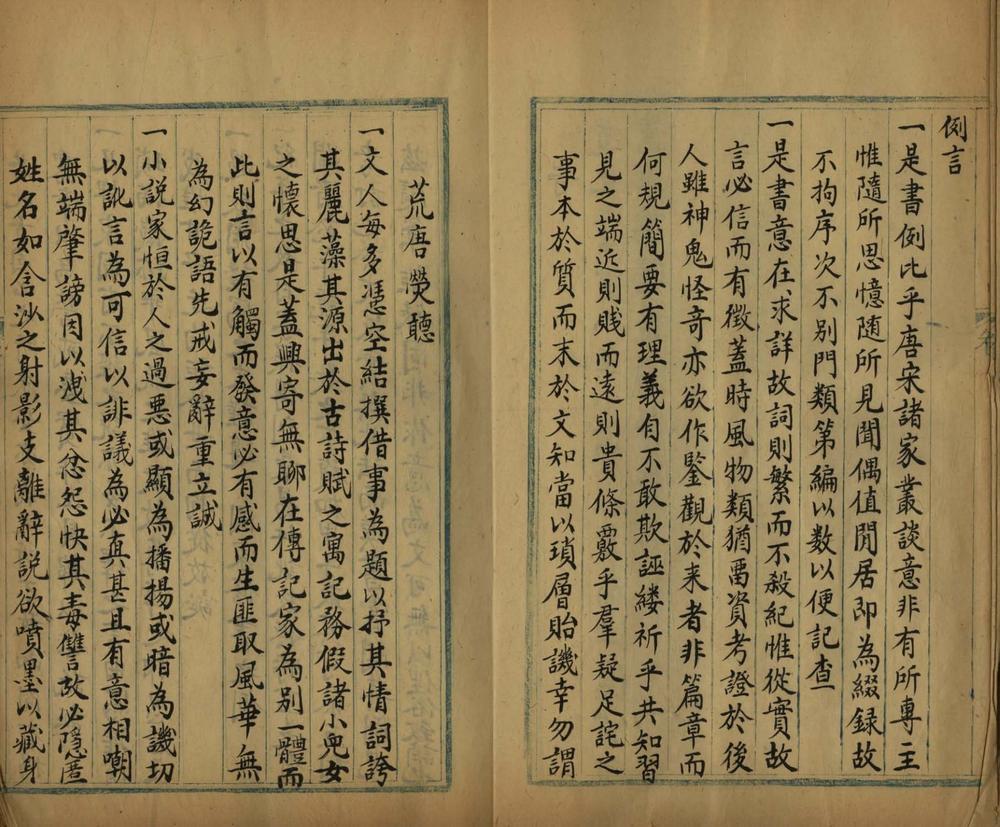 例言
一是書例比乎唐宋諸家叢談意非有所專主
惟隨所思憶随所見聞偶值閒居即為綴録故
不拘序次不別門類第編以数以便記查
一是書意在求詳故詞則繁而不殺紀惟從實故
言必信而有徵蓋時風物類猶畱資考證於後
人雖神鬼怪奇亦欲作鑒觀於来者非篇章而
何規簡要有理義自不敢欺誣縷祈乎共知習
見之端近則賤而遠則貴條覈乎羣疑足詫之
事本於質而末於文知當以瑣屑貽譏幸勿謂
荒唐熒聽
一文人每多憑空結撰借事為題以抒其情詞誇
其麗藻其源出於古詩賦之寓記務假諸小兒女
之懷思是蓋興寄無聊在傳記家為别一體而
此則言以有觸而發意必有感而生匪取風華無
為幻詭語先戒妄辭重立誠
一小説家恒於人之過惡或顯為播揚或暗為譏切
以訛言為可信以誹議為必真甚且有意相嘲
無端肇謗因以洩其忿怨快其毒讐故必隱匿
姓名如含沙之射影支離辭説欲噴墨以藏身